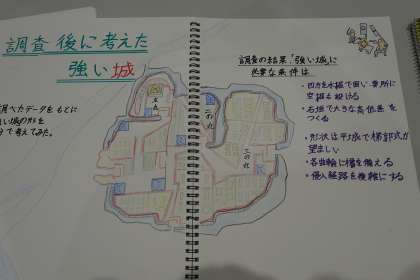 調査後に考えた
強い城
調べたデータをもとに
強い城の形を
分で考えてみた。
本丸
二の丸
三の丸
調査の結果「強い城」に
必要な条件は
・四方を水堀で囲い、要所に
空堀を設ける
・石垣で大きな高低差を
つくる
・形状は平城で梯郭式が
望ましい
・各曲輪に櫓を備える
・侵入経路を複雑にする